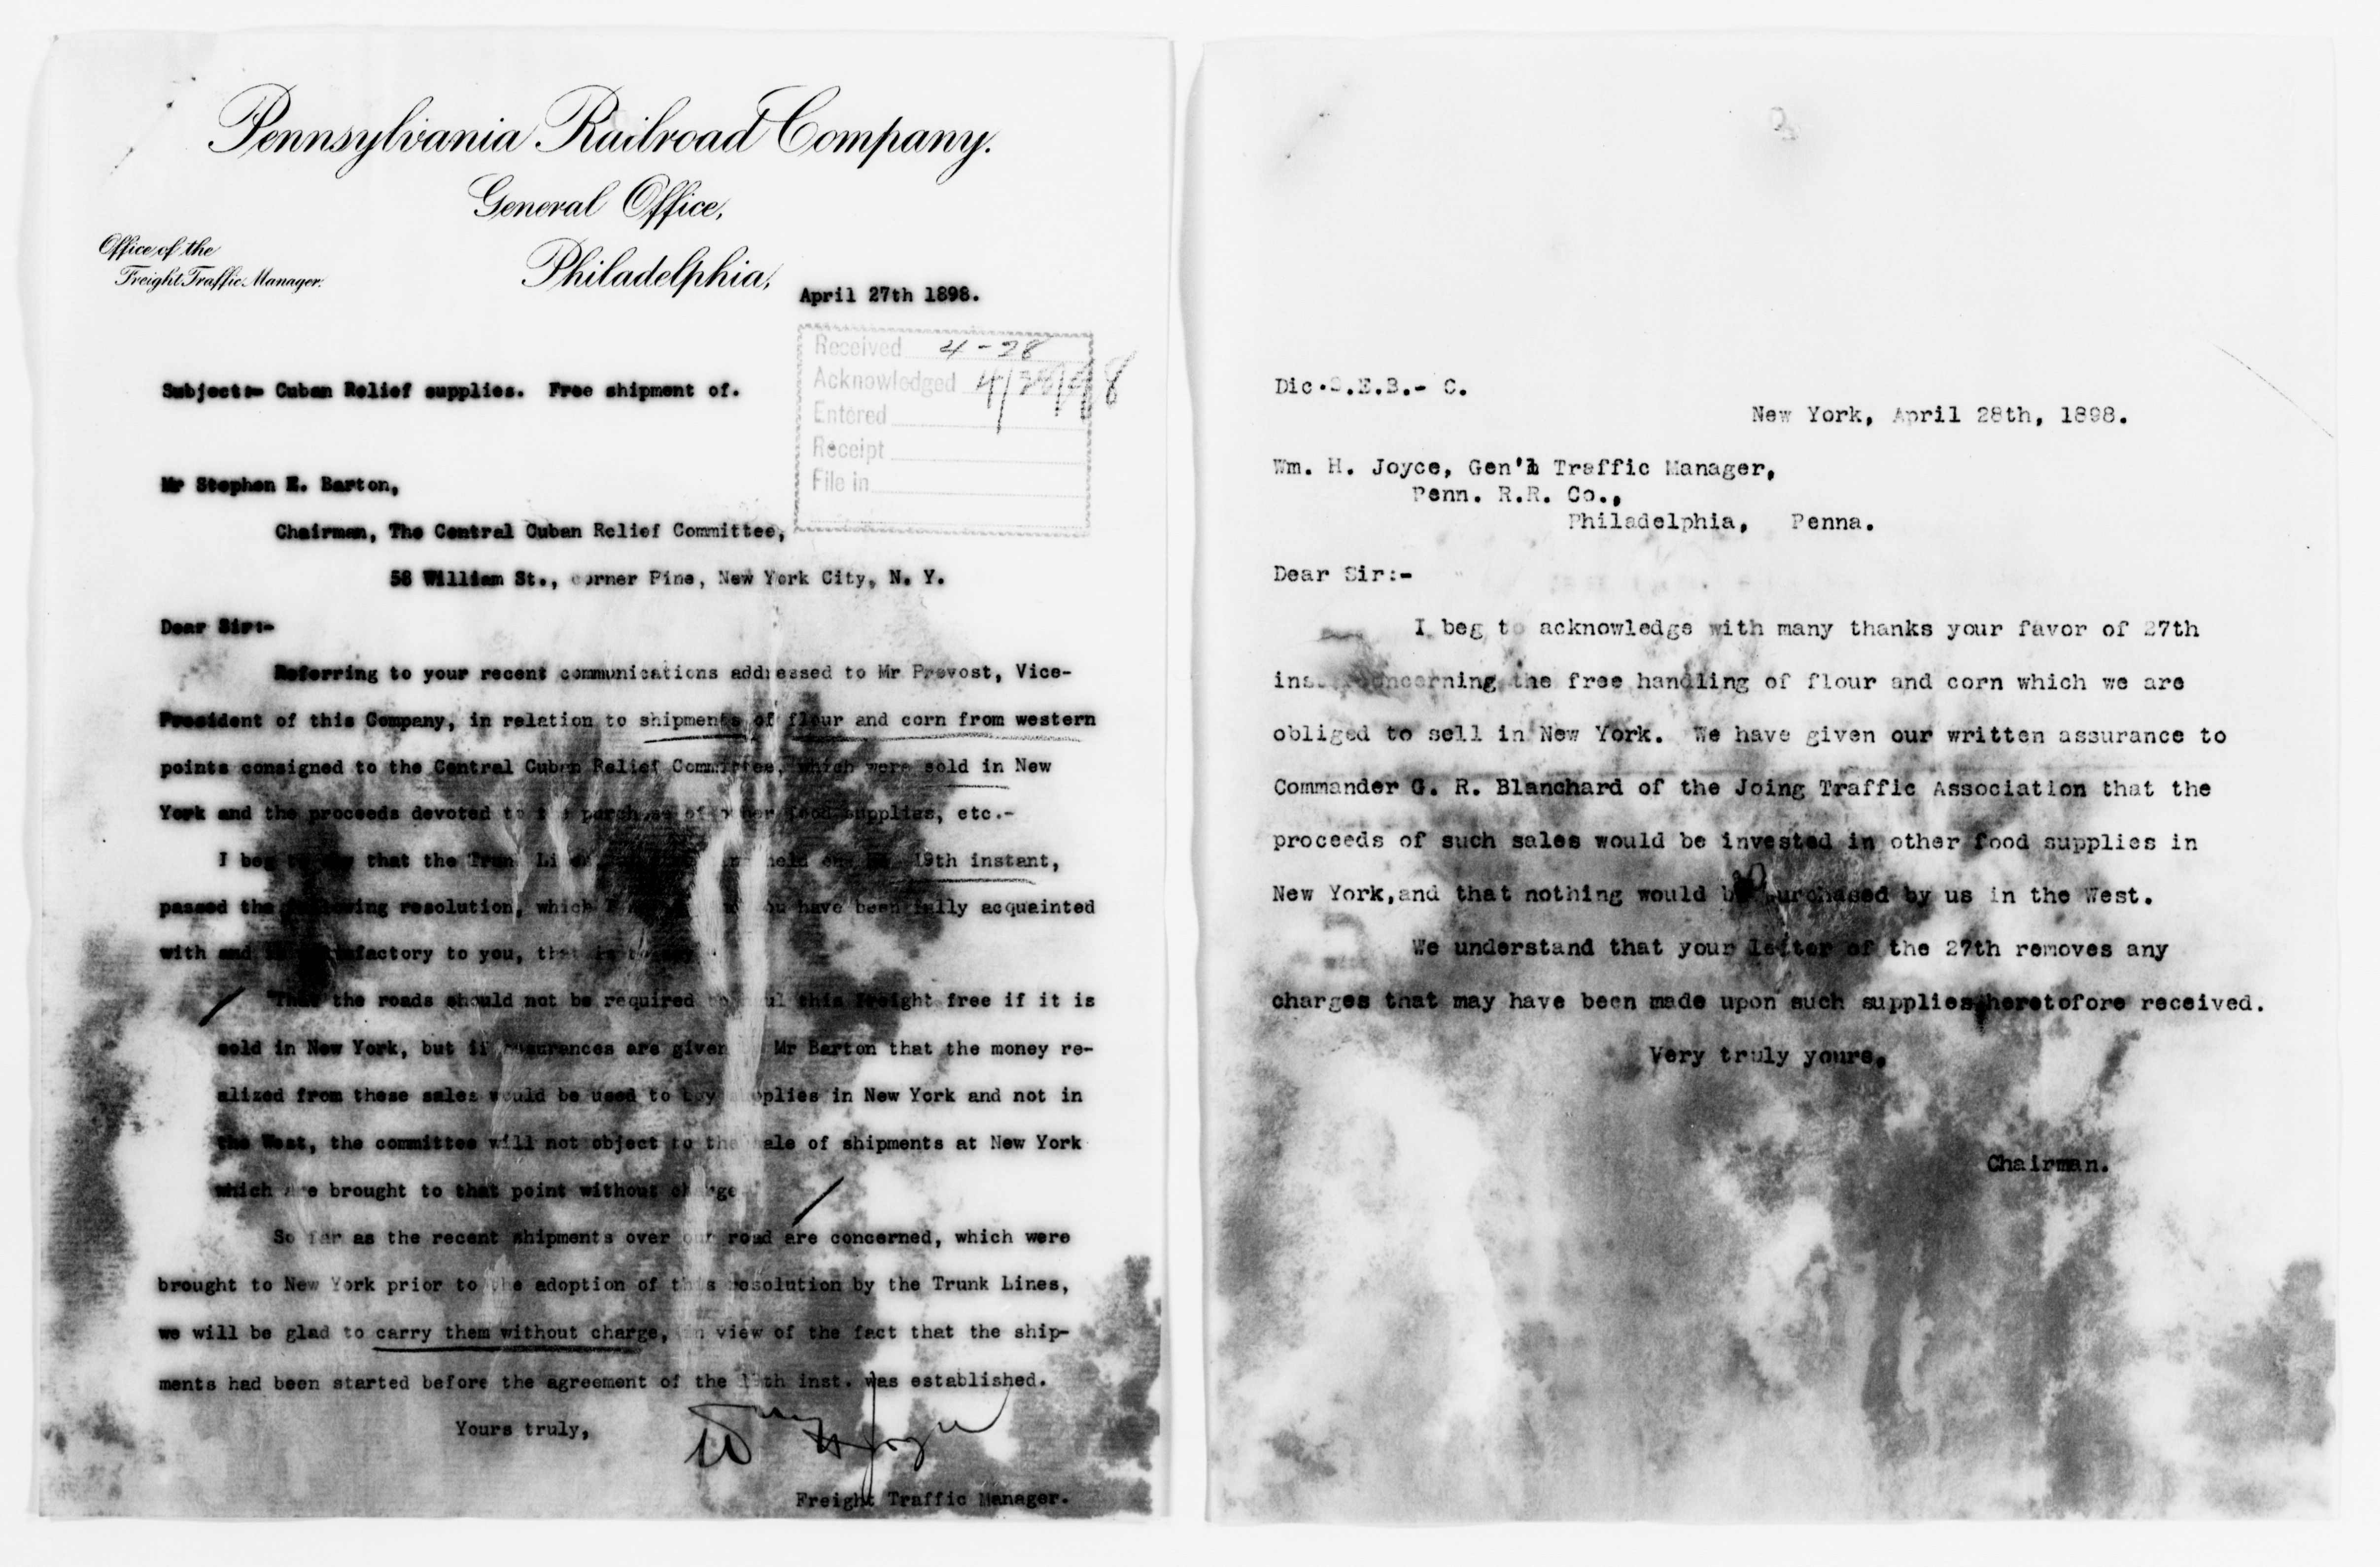 Pennsylvania Railroad Company.
General Office,
Office of the
Freight Traffic Manager.
Philadelphia,
April 27th 1898.
Received 4-28
Acknowledged 4/28/98
Entered
Receipt
File in
Subject:- Cuban Relief supplies. Free shipment of.
Mr Stephen E. Barton,
Chairman, The Central Cuban Relief Committee,
58 William St., corner Pine, New York City, N. Y.
Dear Sir:-
Referring to your recent communications addressed to Mr Prevost, Vice-
President of this Company, in relation to shipments of flour and corn from western
points consigned to the Central Cuban Relief Committee, which were sold in New
York and the proceeds devoted to the purchase of other food supplies, etc.-
I beg to say that the Trunk Line held 19th instant,
passed the following resolution, which you have been fully acquainted
with and satisfactory to you, that is to say
"That the roads should not be required to haul this freight free if it is
sold in New York, but if assurances are given Mr Barton that the money re-
alized from these sales would be used to buy supplies in New York and not in
the West, the committee will not object to the sale of shipments at New York
which are brought to that point without charge
So far as the recent shipments over our road are concerned, which were
brought to New York prior to the adoption of this resolution by the Trunk Lines,
we will be glad to carry them without charge, in view of the fact that the ship-
ments had been started before the agreement of the 19th inst. was established.
Yours truly,
Wm H Joyce
Freight Traffic Manager.
Dic.S.E.B.- C.
New York, April 28th, 1898.
Wm. H. Joyce, Gen'l Traffic Manager,
Penn. R.R. Co.,
Philadelphia, Penna.
Dear Sir:-
I beg to acknowledge with many thanks your favor of 27th
inst. concerning the free handling of flour and corn which we are
obliged to sell in New York. We have given our written assurance to
Commander G. R. Blanchard of the Joing Traffic Association that the
proceeds of such sales would be invested in other food supplies in
New York,and that nothing would be purchased by us in the West.
We understand that your letter of the 27th removes any
charges that may have been made upon such supplies heretofore received.
Very truly yours,
Chairman.